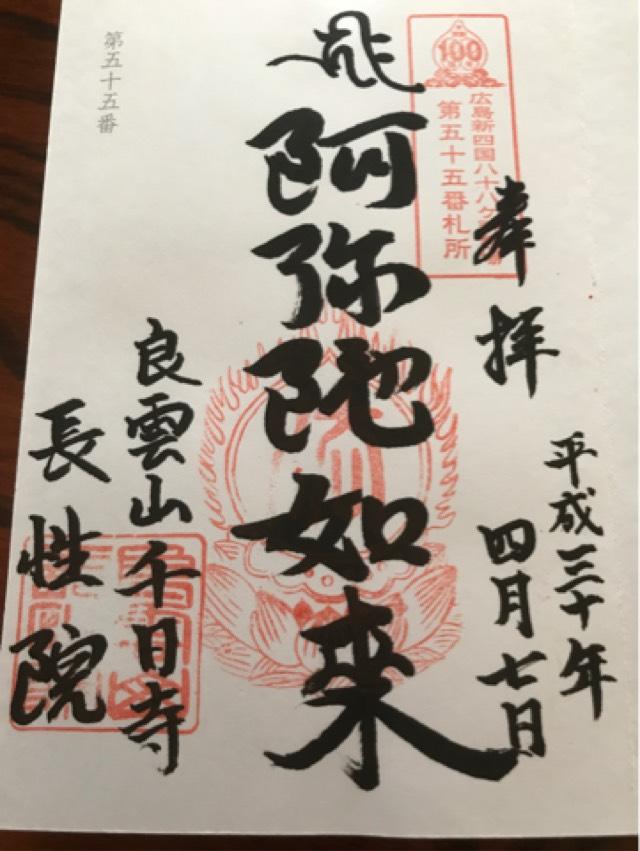 奉拝
平成三十年
四月七日
100
広島新四国八十八ケ
第五十五番札所
阿弥陀如来
良雲山千日寺
長性院
第五十五番